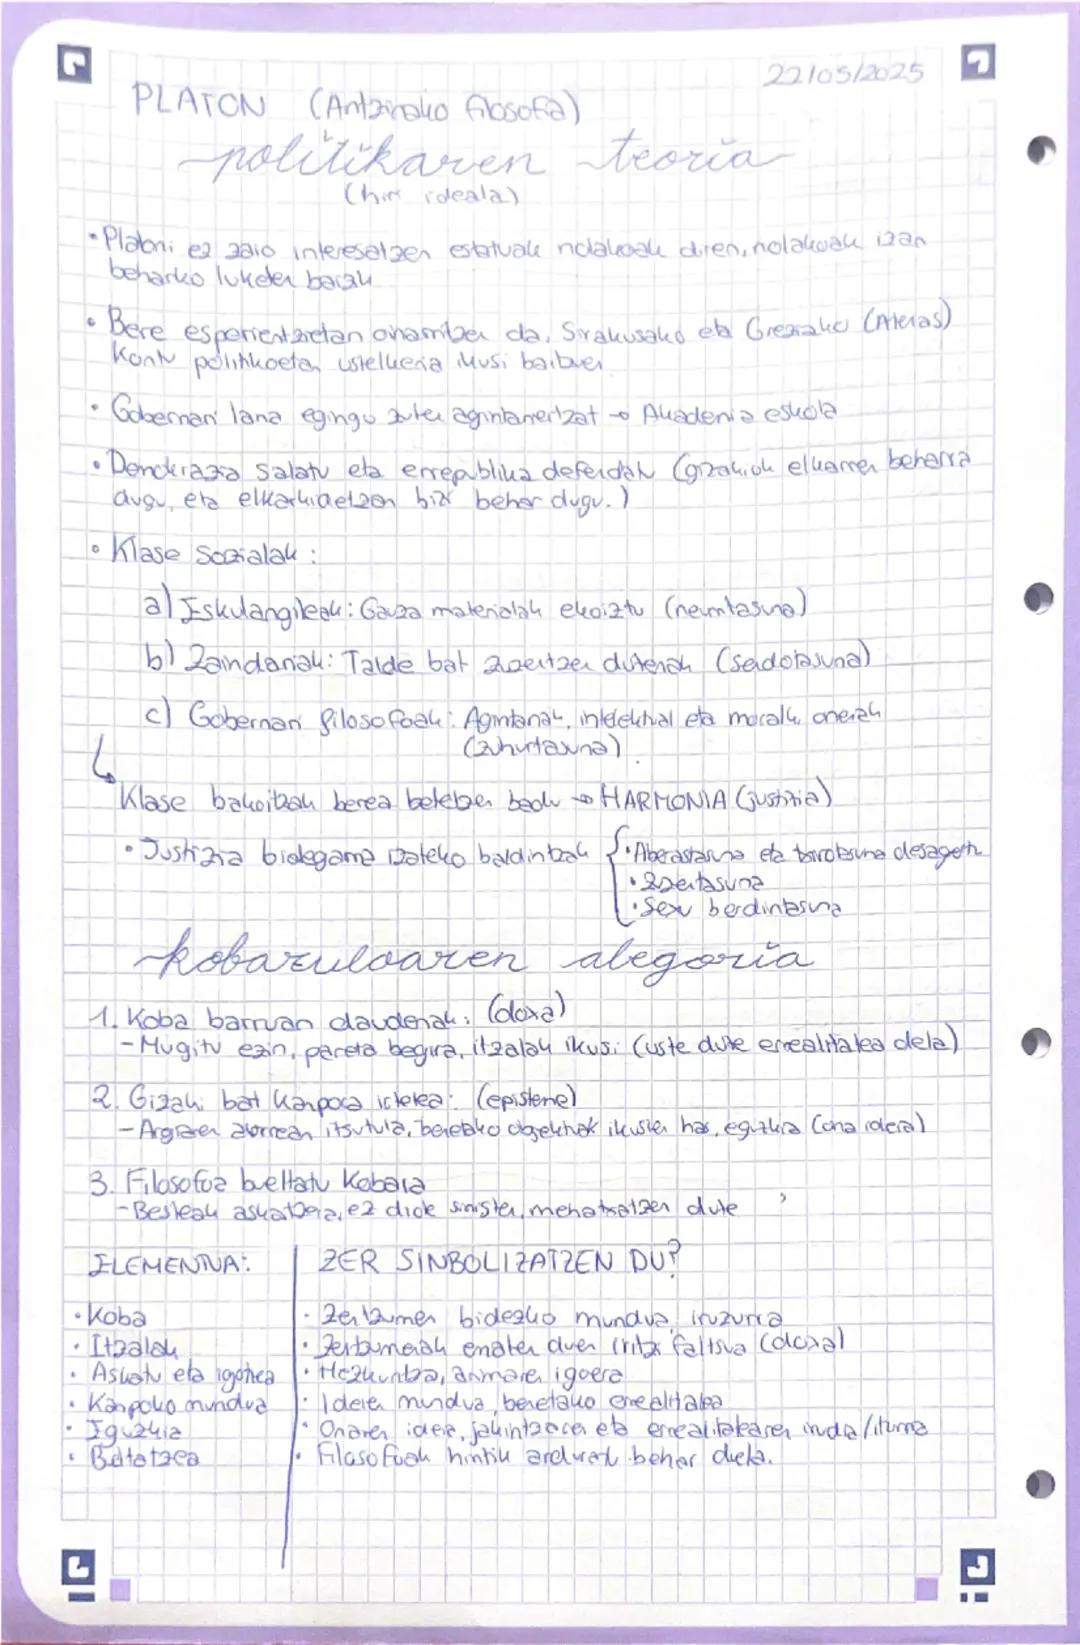 22/05/2025
PLATON (Antzinako filosofia)
politikaren teoria
(hiri ideala)
• Platoni ez zaio interesatzen estatuak nolakoak diren, nolakoak izan
beharko luketen baizik
• Bere esperientzietan oinarritzen da, Sirakusako eta Greziako (Atenas)
kontu politikoetan ustelkeria ikusi baitzuen
• Gobernari lana egingo zuten agintarientzat → Akademia eskola
• Demokrazia salatu eta errepublika defendatu (gizakiok elkarren beharra
dugu, eta elkarkidetzan bizi behar dugu.)
• Klase sozialak:
a) Eskulangileak: Gauza materialak ekoiztu (neurritasuna)
b) Zaindariak: Talde bat zuzentzen dutenak (sendotasuna)
c) Gobernari filosofoak: Agintariak, intelektual eta moralki onenak
(zuhurtasuna)
↳ Klase bakoitzak berea betetzen badu → HARMONIA (justizia)
• Justizia bideragarria izateko baldintzak { • Aberastasuna eta txirotasuna desagertu
• Zuzentasuna
• Sexu berdintasuna
kobazuloaren alegoria
1. Koba barruan daudenak: (doxa)
- Mugitu ezin, pareta begira, itzalak ikusi (uste dute errealitatea dela)
2. Gizaki bat kanpora irtetea: (episteme)
- Argiaren aurrean itsutu da, benetako objektuak ikusten hasi, eguzkia (ona ideia)
3. Filosofoa bueltatu kobara
- Besteak askatzera, ez diote sinisten, mehatxatzen dute
ELEMENTUA: ZER SINBOLIZATZEN DU?
• Koba • Zentzumen bidezko mundua, iruzurra
• Itzalak • Zentzumenak ematen duen iritzi faltsua (doxa)
• Askatu eta igotzea • Hezkuntza, arimaren igoera
• Kanpoko mundua • Ideien mundua, benetako errealitatea
• Eguzkia • Onaren ideia, jakintzaren eta errealitatearen indar/iturria
• Bueltatzea • Filosofoak hiritik arduratu behar duela.